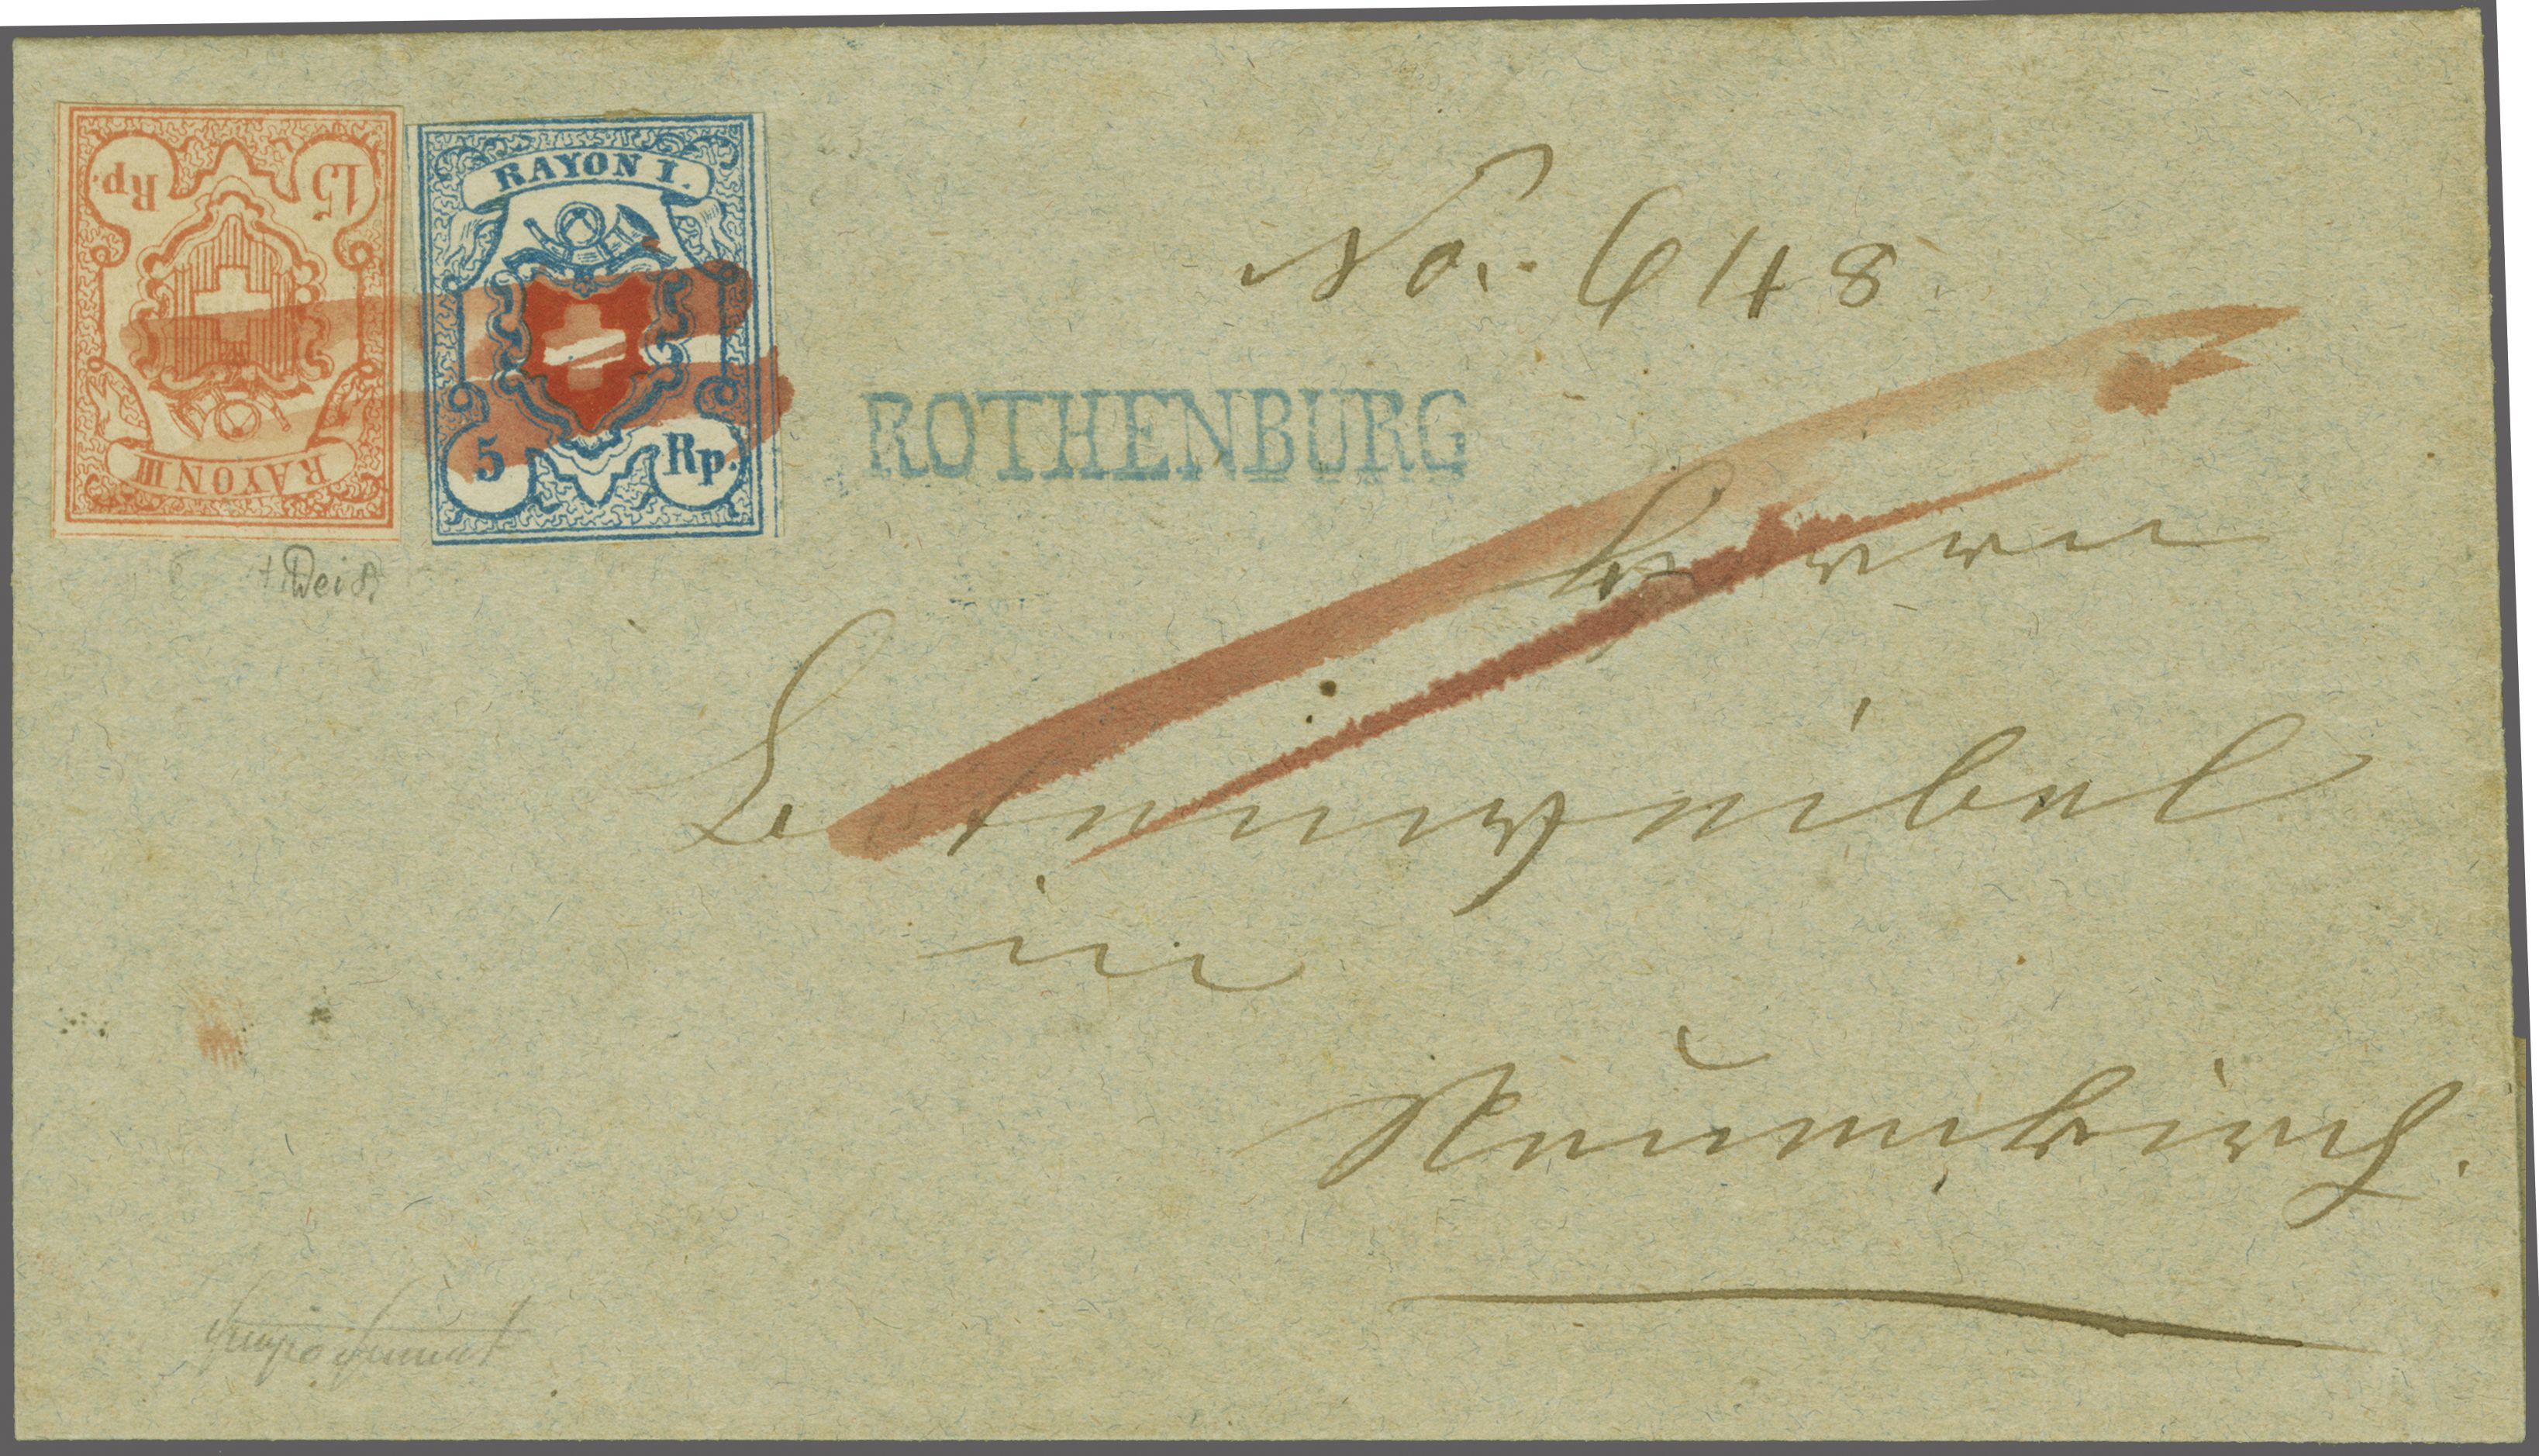 15 Rp.
RAYON III
RAYON I.
5 Rp.
No. 648
ROTHENBURG
Herrn
in
Neunkirch.